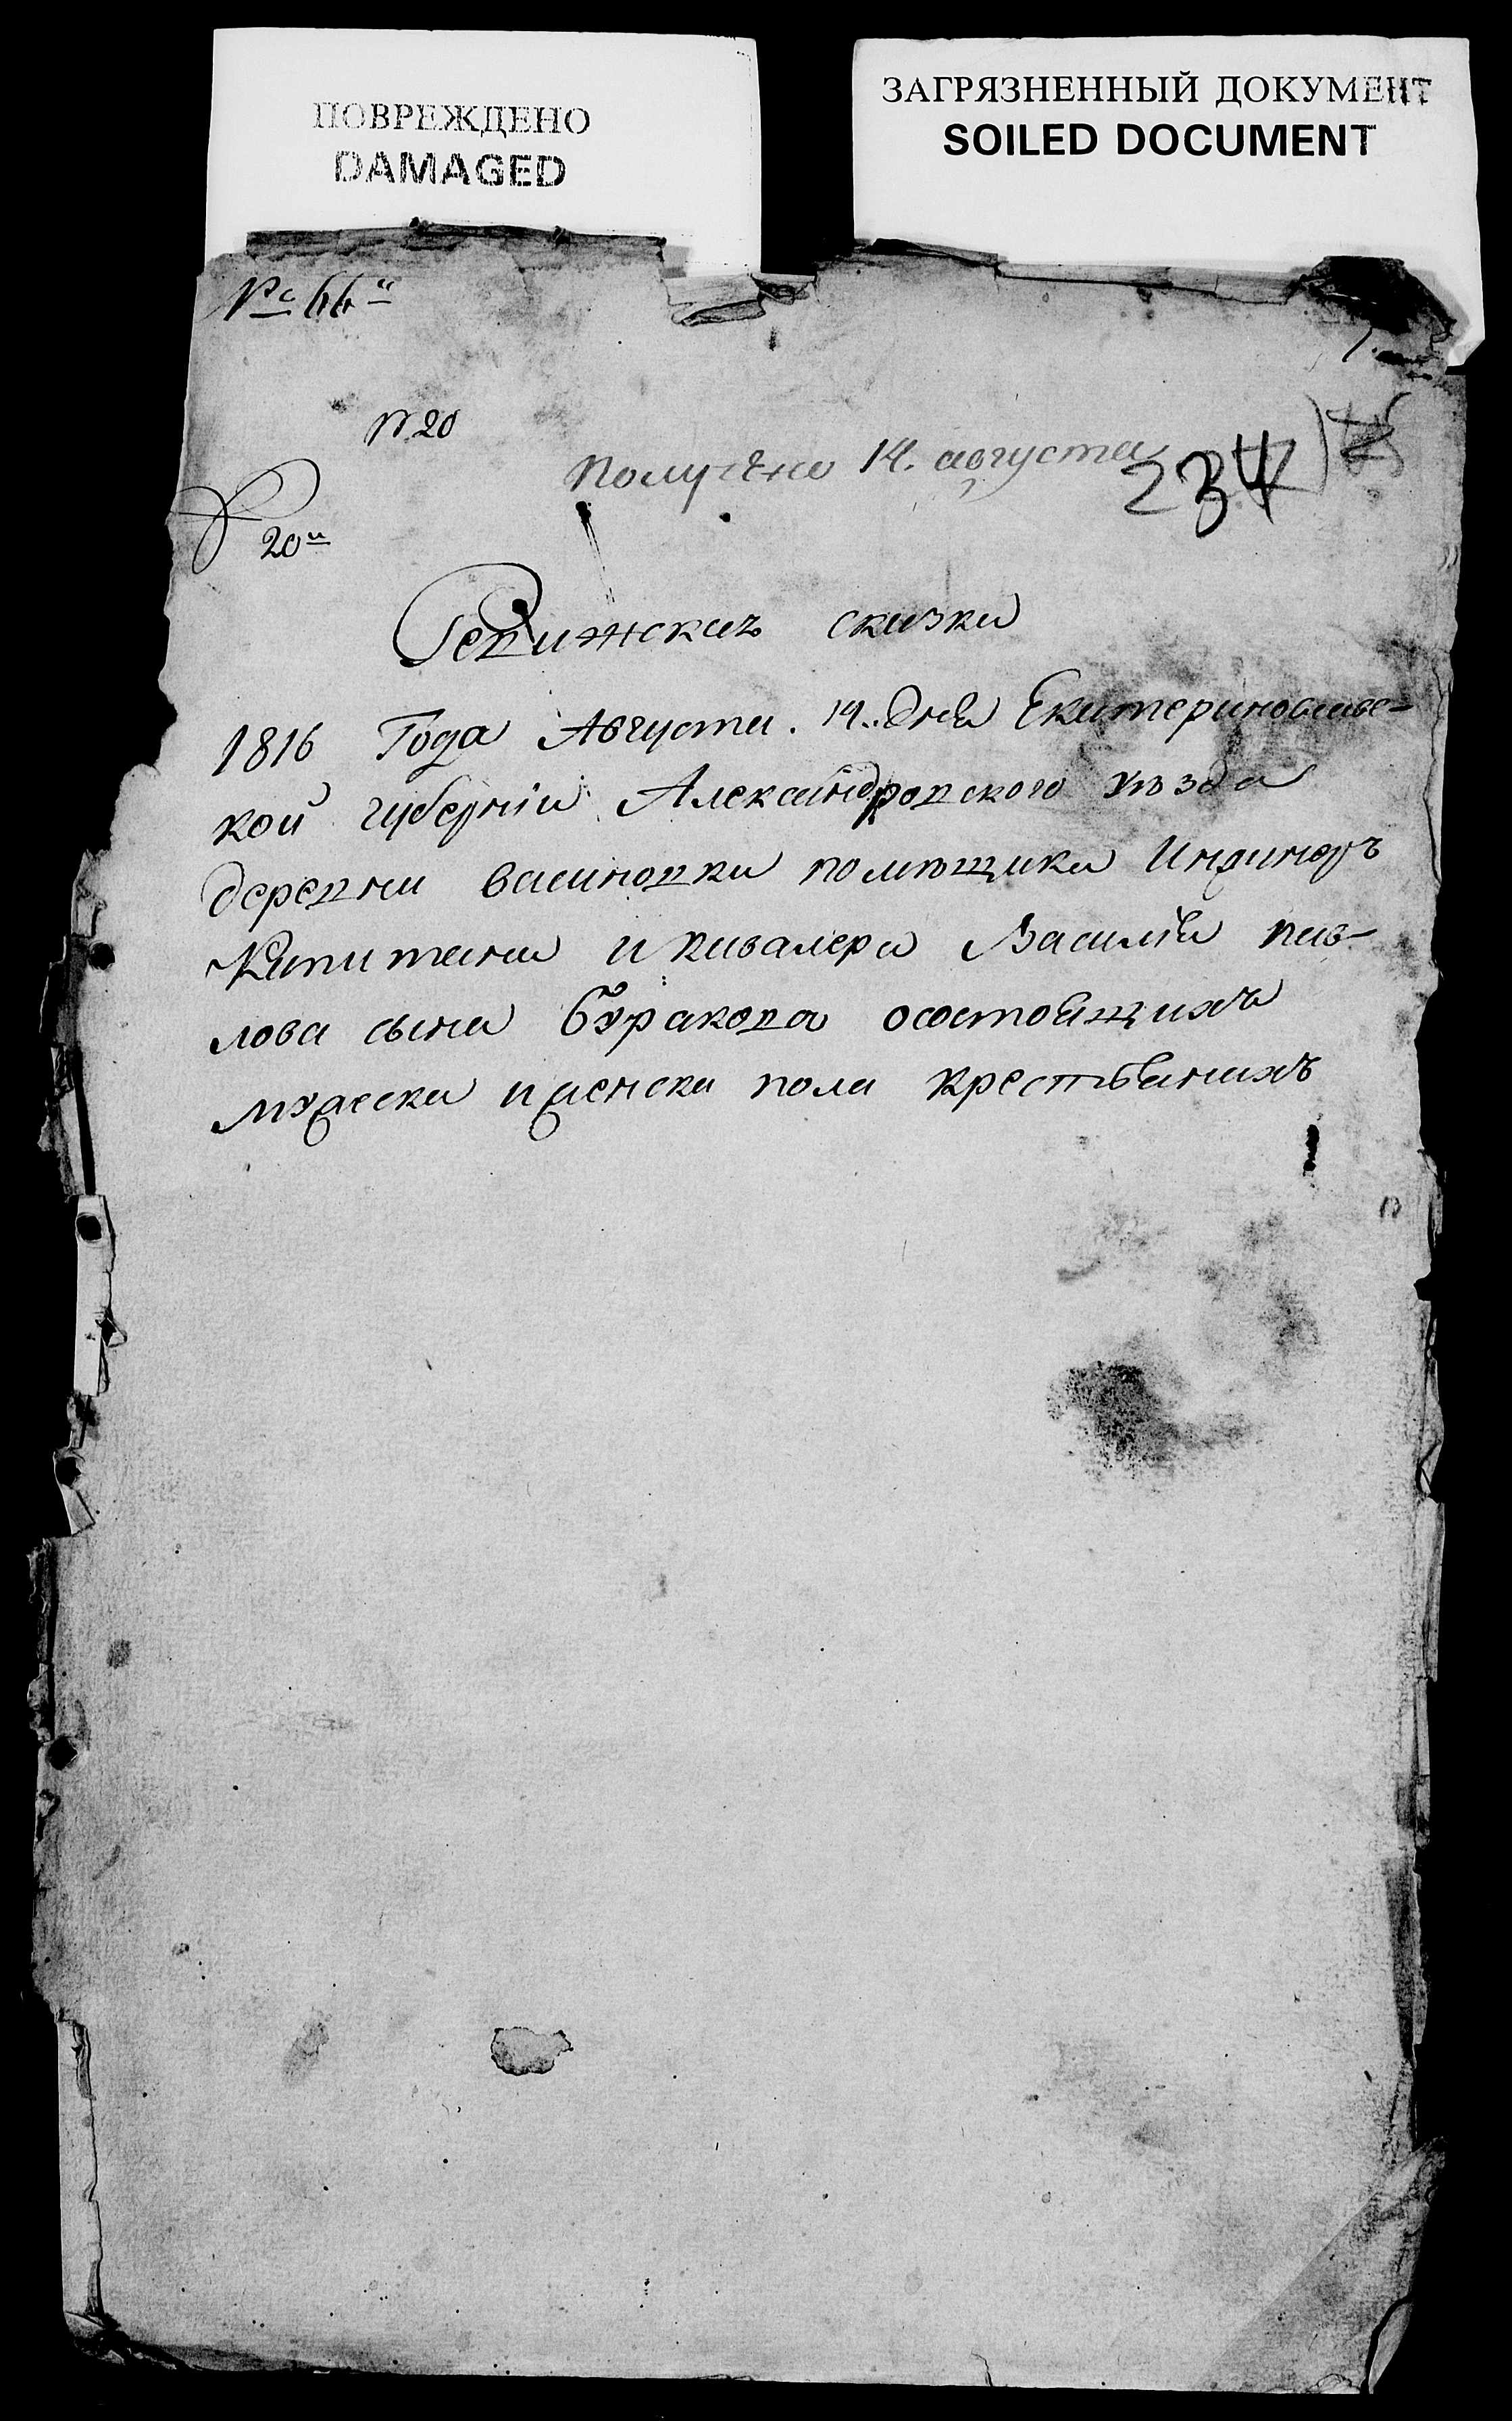 ПОВРЕЖДЕНО
DAMAGED
ЗАГРЯЗНЕННЫЙ ДОКУМЕНТ
SOILED DOCUMENT
№ 66й
N 20
Получено 14. августа
234
20й
Ревижская сказка
1816 Года Августа. 14. дня Екатеринославс-
кой губернiи Александровского уѣзда
деревни васиновки помѣщика Инжинеръ
Капитана и кавалера Василiя пав-
лова сына Буракова осостоящихъ
мужеска и женска пола крестьянахъ